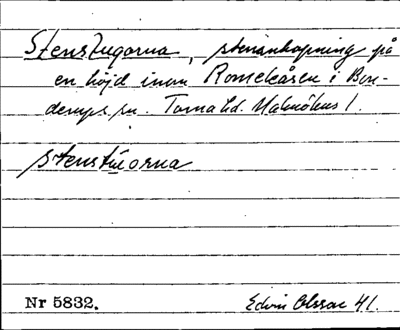 Stenstugorna, stenanhopning på
en höjd inom Romeleåsen i Bon-
derups sn. Torna hd. Malmöhus l.
stenstúorna
Nr 5832.
Edvin Olsson 41.